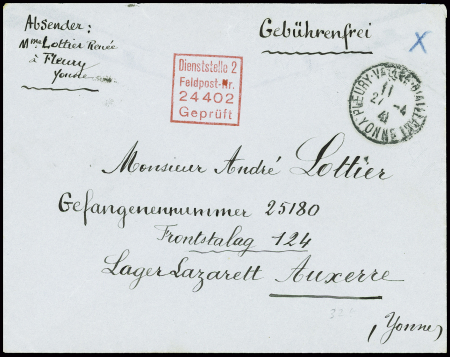 Absender:
Mme Lottier Renée
à Fleury
Yonne
Gebührenfrei
X
Dienststelle 2
Feldpost-Nr.
24402
Geprüft
FLEURY-VALLÉE-D'AILLANT
11
27 -4
41
YONNE
Monsieur André Lottier
Gefangenennummer 25180
Frontstalag 124
Lager Lazarett Auxerre
(Yonne)